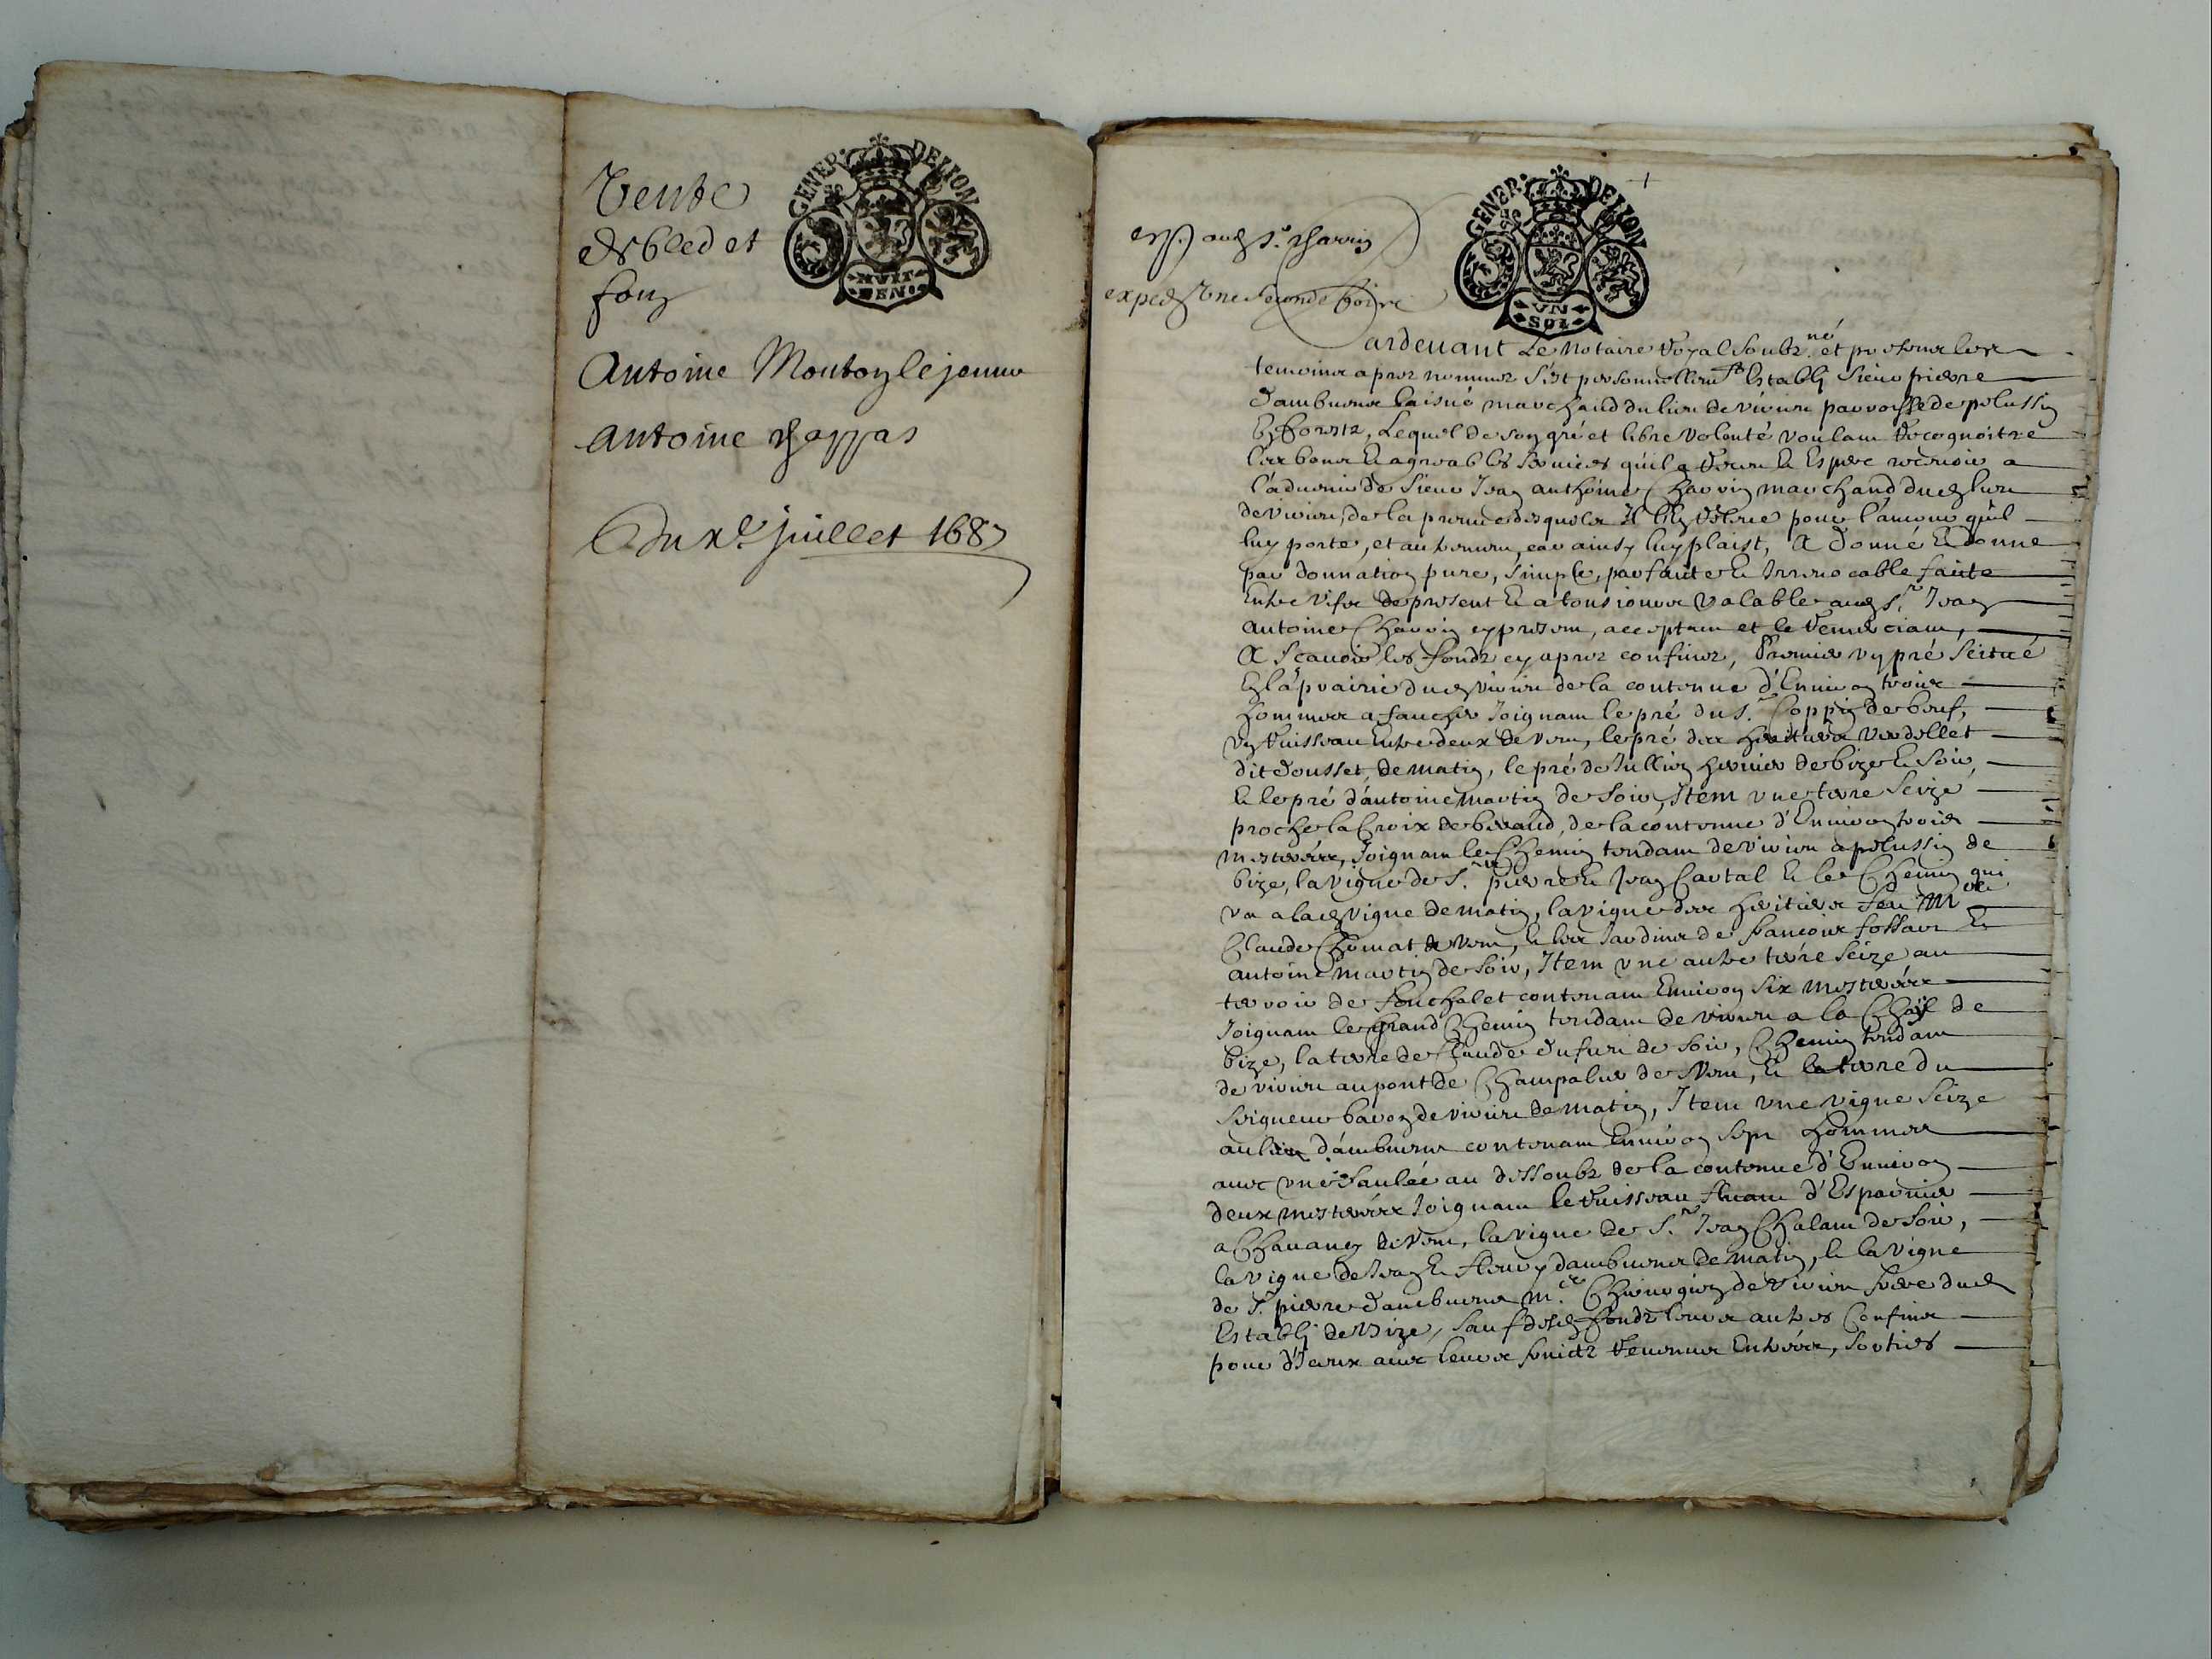 GENER. DE LION
HUIT DEN.
Vente
de bled et
foin
Antoine Montoy le jeune
antoine chappas
Du xe juillet 1687
GENER. DE LION
UN SOL
exp. aud sr. Charvin
exped une seconde fois
ardevant Le Notaire Royal soubz.né et presens les
temoins apres nommes s'est personnellemt Estably sieur pierre
Dambuens laisné marchand du lieu de virieu parroisse de pelussin
En forestz, Lequel de son gré et libre volonté voulant Recognoistre
les bons et agreables services qu'il a Receu et Espere recevoir a
l'advenir de sieur Jean anthoine Charvin marchand dud lieu
de virieu, de la preuve desquels Il l'a Releve pour l'amour qu'il
luy porte, et autrement, car ainsy luy plaist, A Donné et donne
par donnation pure, simple, parfaite et Irrevocable faite
Entre vifs de present et a tousjours valable aud sr. Jean
antoine Charvin cy present, acceptant et le Remerciant,
A Scavoir les fondz cy apres confinez, Premier un pré scitué
En la prairie dud virieu de la contenue d'Environ trois
hommes a faucher Joignant le pré du sr. Coppin de beuf,
un Ruisseau Entre deux de vent, le pré des heritiers verdellet
dit Dousset, de matin, le pré de Jullien hervier de bize et soir,
et le pré d'antoine martin de soir, Item une terre seize
proche la Croix de beraud, de la contenue d'Environ trois
mesteres, Joignant le Chemin tendant de virieu a pelussin de
bize, la vigne de sr. pierre et Jean Cartal et le Chemin qui
va a lad vigne de matin, la vigne des heritiers feu Mre
Claude Chomat de vent, et les Jardins de francois fossat et
antoine martin de soir, Item une autre terre seize au
terroir de fouchalet contenant Environ six mesteres
Joignant le grand Chemin tendant de virieu a la Chal de
bize, la terre de Claude Dufuri de soir, Chemin tendant
de virieu au pont de Champalier de vent, et la terre du
seigneur baron de virieu de matin, Item une vigne seize
au lieu d'ambuens contenant Environ sept hommes
avec une saulée au dessoubz de la contenue d'Environ
deux mesteres Joignant le Ruisseau fluant d'Esparvier
a Chavany de vent, la vigne de sr. Jean Chalant de soir,
la vigne de Jean et fleury dambuens de matin, et la vigne
de sr. pierre Dambuens m.re Chirurgien de virieu frere dud
Estably de bize, sauf desd fondz leurs autres Confins
pour d'Iceux avec leurs fruictz Revenus Entrées, sorties